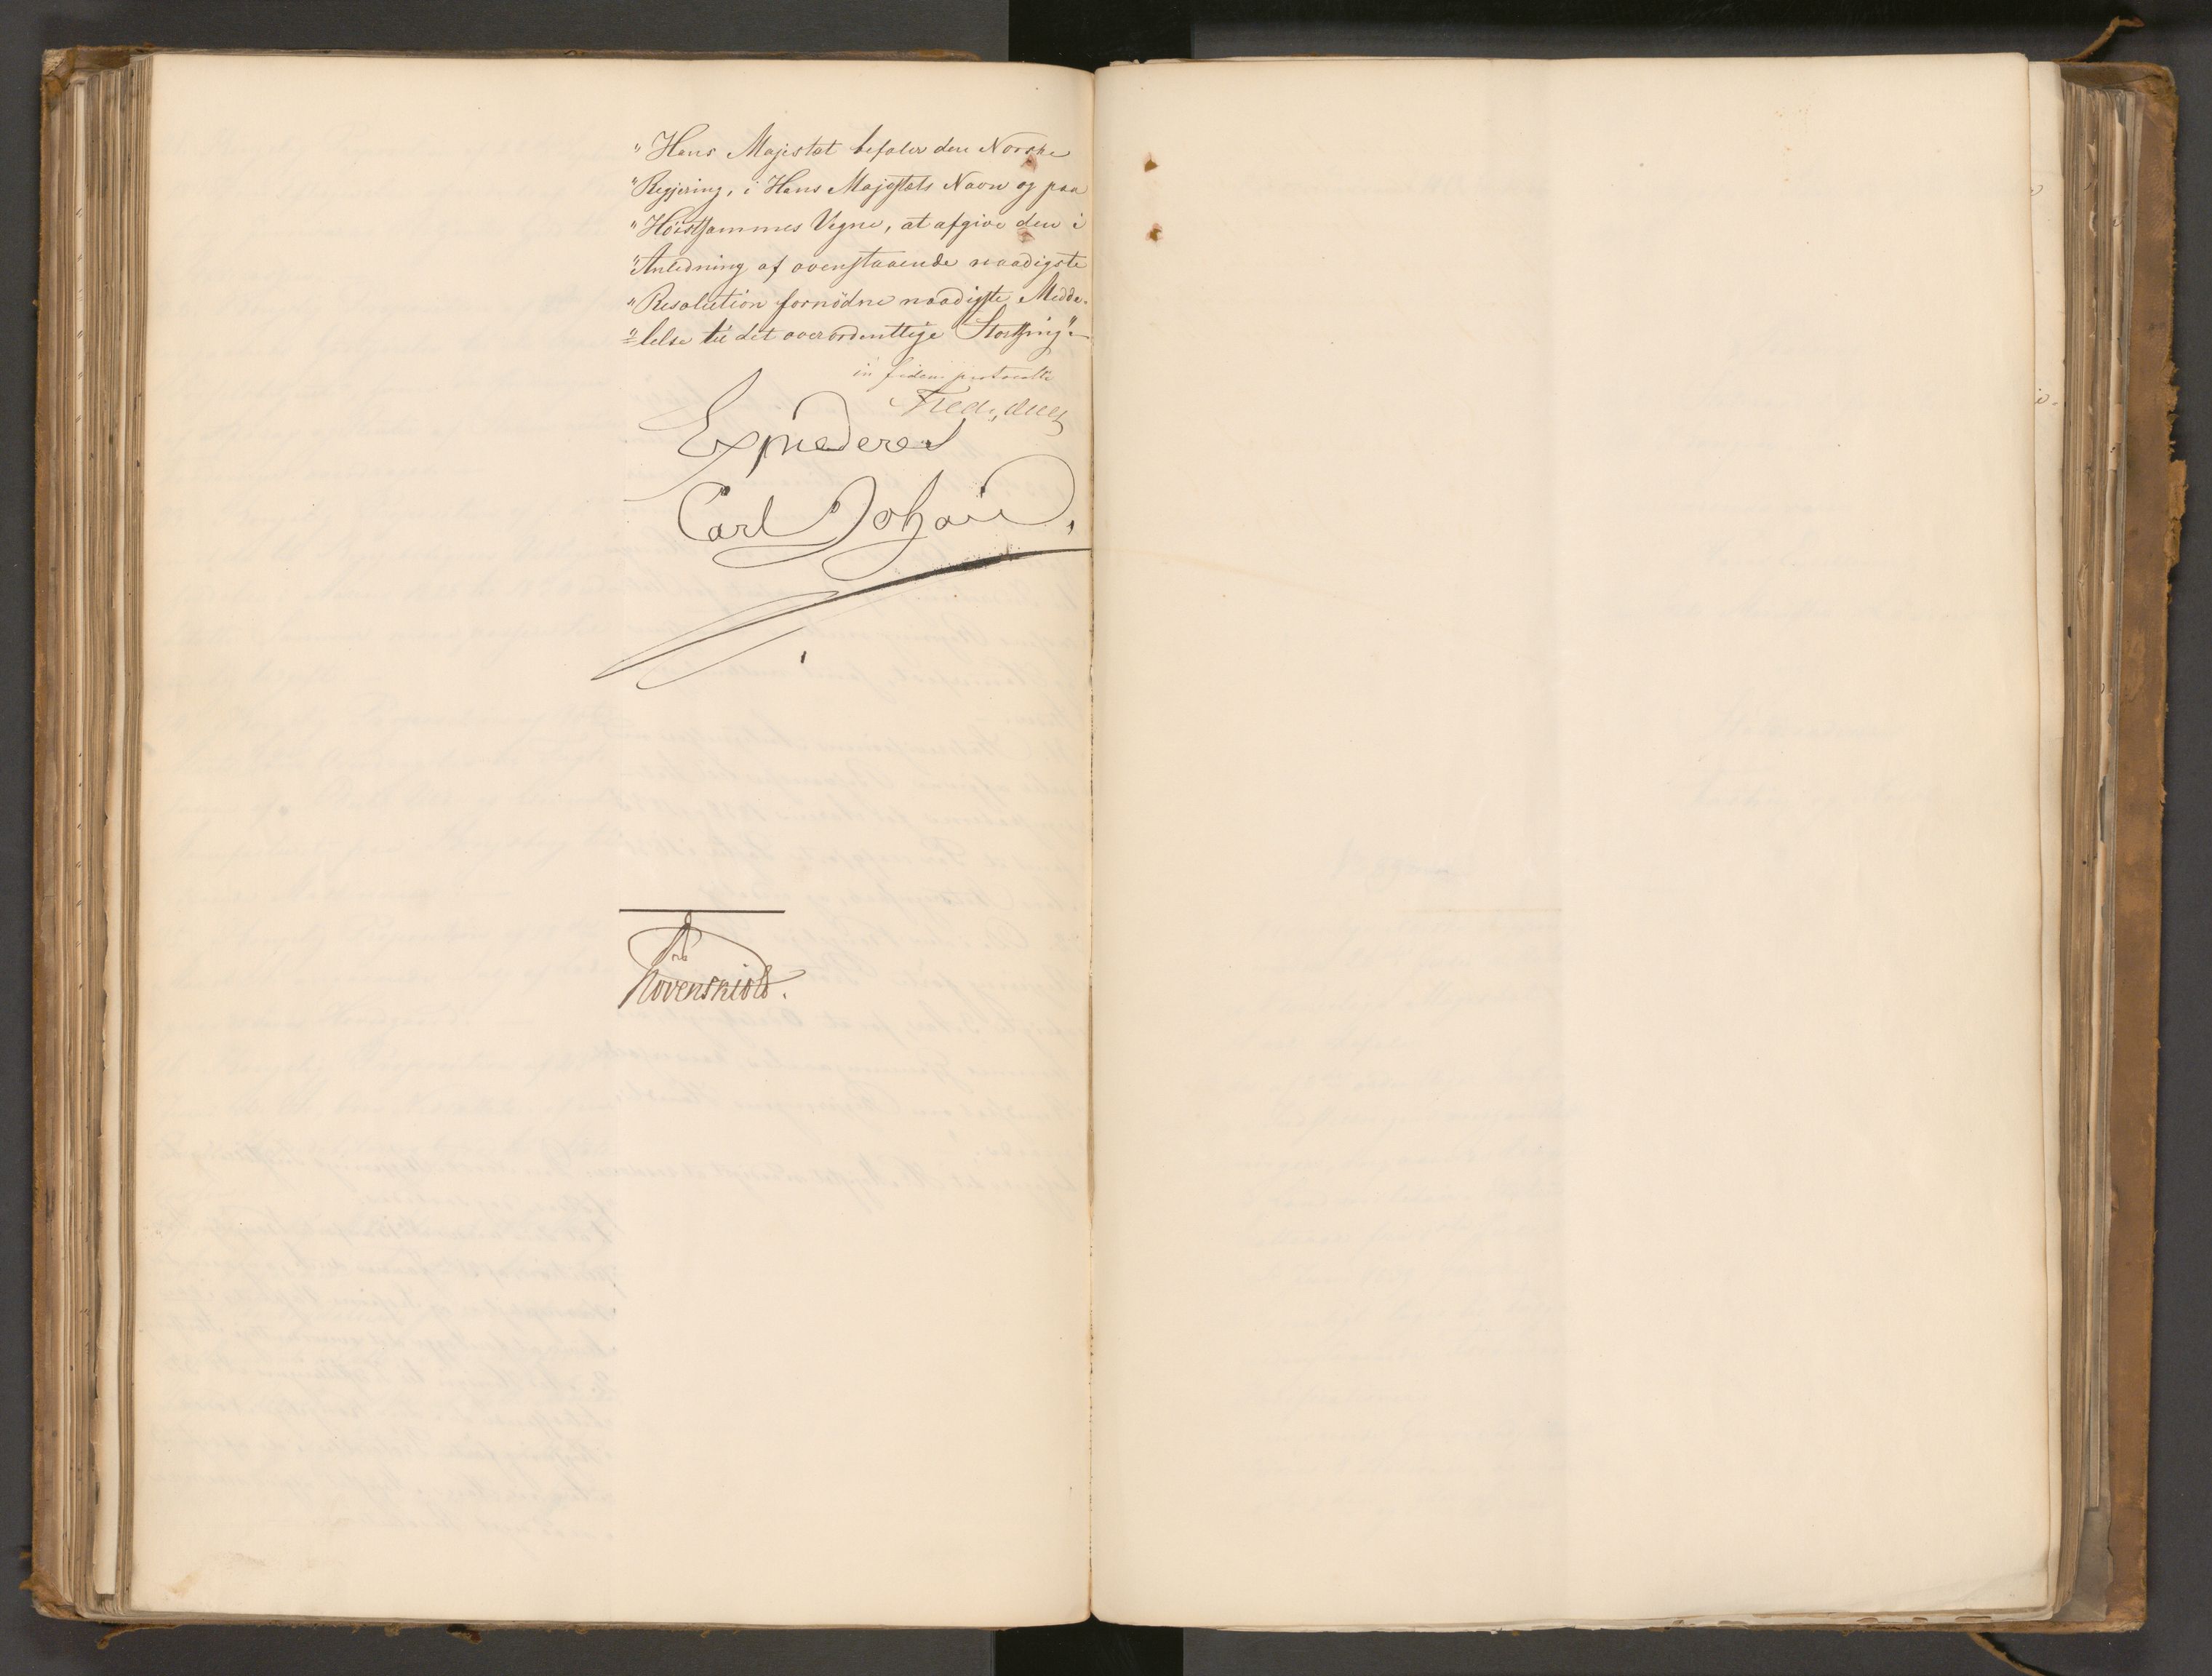 "Hans Majestæt befaler den Norske
"Regjering, i Hans Majestæts Navn og paa
"Höistsammes Vegne, at afgive den i
"Anledning af ovenstaaende naadigste
"Resolution fornödne naadigste Medde-
"lelse til det overordenttlige Storthing"
in fidem protocolli
Fredr. Due
Expederes
Carl Johan.
Løvenskiold.